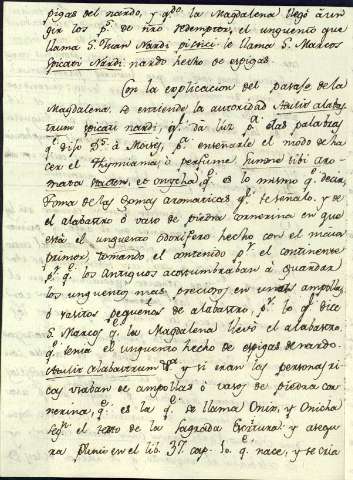 pigas del nardo, y qdo. la Magdalena llegó à un
gir los ps. de nro redemptor, el unguento que
llama S. Juan Nardi pistici lo llama S. Marcos
Spicati Nardi nardo hecho de espigas.
Con la explicacion del pasage de la
Magdalena, se entiende la autoridad Attulit alabas
trum spicati nardi, qe. dà luz pa. las palabras
qe. dijo Ds. à Moises, pa. enseñarle el modo de ha
cer el Thymiama, ò perfume sume tibi aro-
mata stacten, et onycha, qe. es lo mismo qe. decir,
toma de las gomas aromaticas qe. te señalo, y de
el alabastro ò vaso de piedra cornerina en que
està el unguento odorifero hecho con el maior
primor, tomando el contenido pr. el continente
pr. qe. los Antiguos acostumbraban à guardar
los unguentos mas preciosos en unas ampollas
ò vasitos pequeños de alabastro, pr. lo qe. dice
S. Marcos qe. la Magdalena llevò el alabastro,
qe. tenia el unguento hecho de espigas de nardo.
Attulit alabastrum y si eran las personas ri
cas usaban de ampollas ò vasos de piedra cor
nerina, qe. es la qe. se llama Onix, y Onicha
segn. el texto de la sagrada Escritura; y asegu
ra Plinio en el lib. 37. cap. 10. qe. nace, y se cria